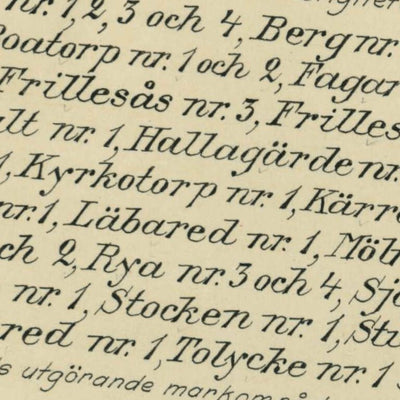 nr. 1, 2, 3 och 4, Berg nr.
Boatorp nr. 1 och 2, Fagar
Frillesås nr. 3, Frilles
lt nr. 1, Hallagärde nr.
1, Kyrkotorp nr. 1, Kärr
nr. 1, Läbared nr. 1, Möl
ch 2, Rya nr. 3 och 4, Sjö
nr. 1, Stocken nr. 1, Stu
red nr. 1, Tolycke nr. 1
utgörande markområ